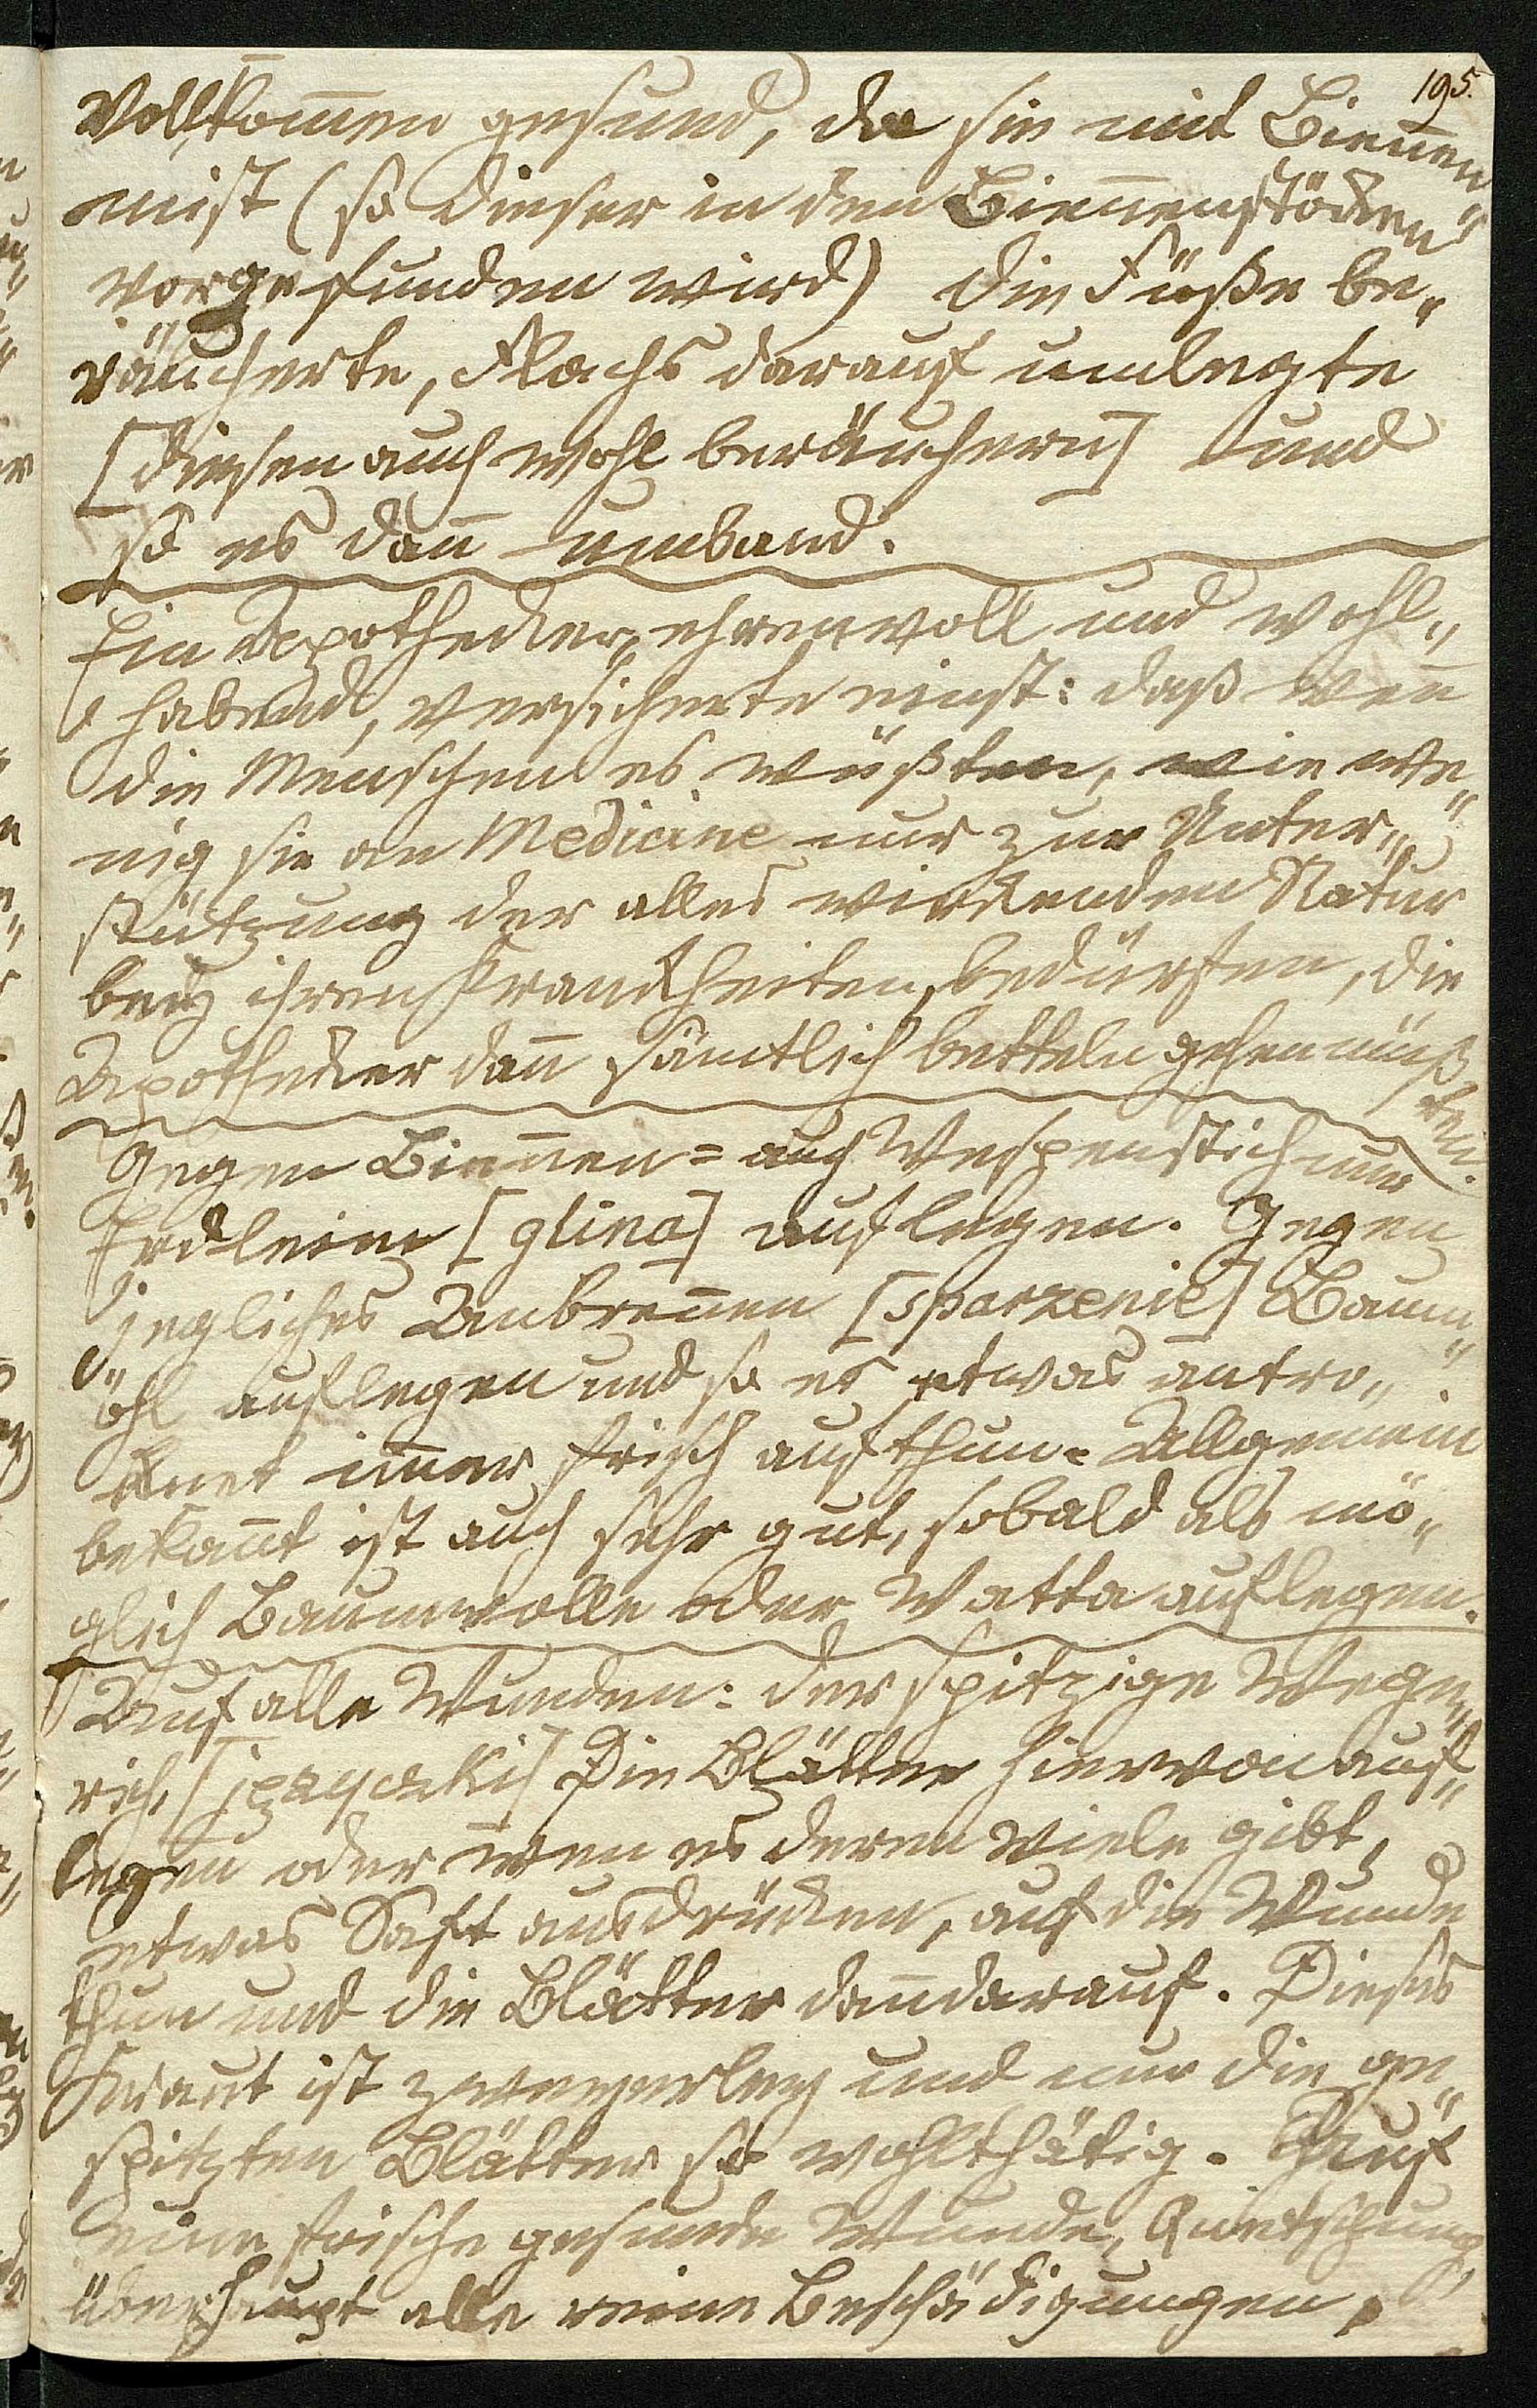 195.
Vollkom̄en gesund, da sie mit Bienen„
mist (so dieser in den Bien̄enstöcken
vorgefunden wird) die Füße be„
räucherte, Flachs darauf umlegte
[diesen auch wohl beräuchern] und
so es dan̄ umband.
Ein Apothecker, ehrenvoll und wohl„
habend, versicherte einst: daß wen̄
die Menschen es wüßten, wie we„
nig sie an Medicine nur zur Unter„
stützung der alles wirckenden Natur
bey ihren Kranckheiten, bedürften, die
Apothecker dan̄ sämtlich betteln gehen müß„
ten.
Gegen Bien̄en= auch Wespenstich nur
Erdleim [glina] auflegen. Gegen
jegliches Anbren̄en [sparzenie] Baum„
öhl auflegen und so es etwas antro„
cknet im̄er frisch aufthun. Allgemein
bekan̄t ist auch sehr gut, sobald als mö„
glich Baumwolle oder Watta auflegen.
Auf alle Wunden: der spitzige Wege„
rich, [języczki] Die Blätter hiervon auf„
legen oder wen es deren viele gibt,
etwas Saft ausdrücken, auf die Wunde
thun und die Blätter dan̄ darauf. Dieses
Kraut ist zweyerley und nur die ge„
spitzten Blätter so wohlthätig. Auf
eine frische gesunde Wunde, Quetschung
überhaupt alle reine Beschädigungen,